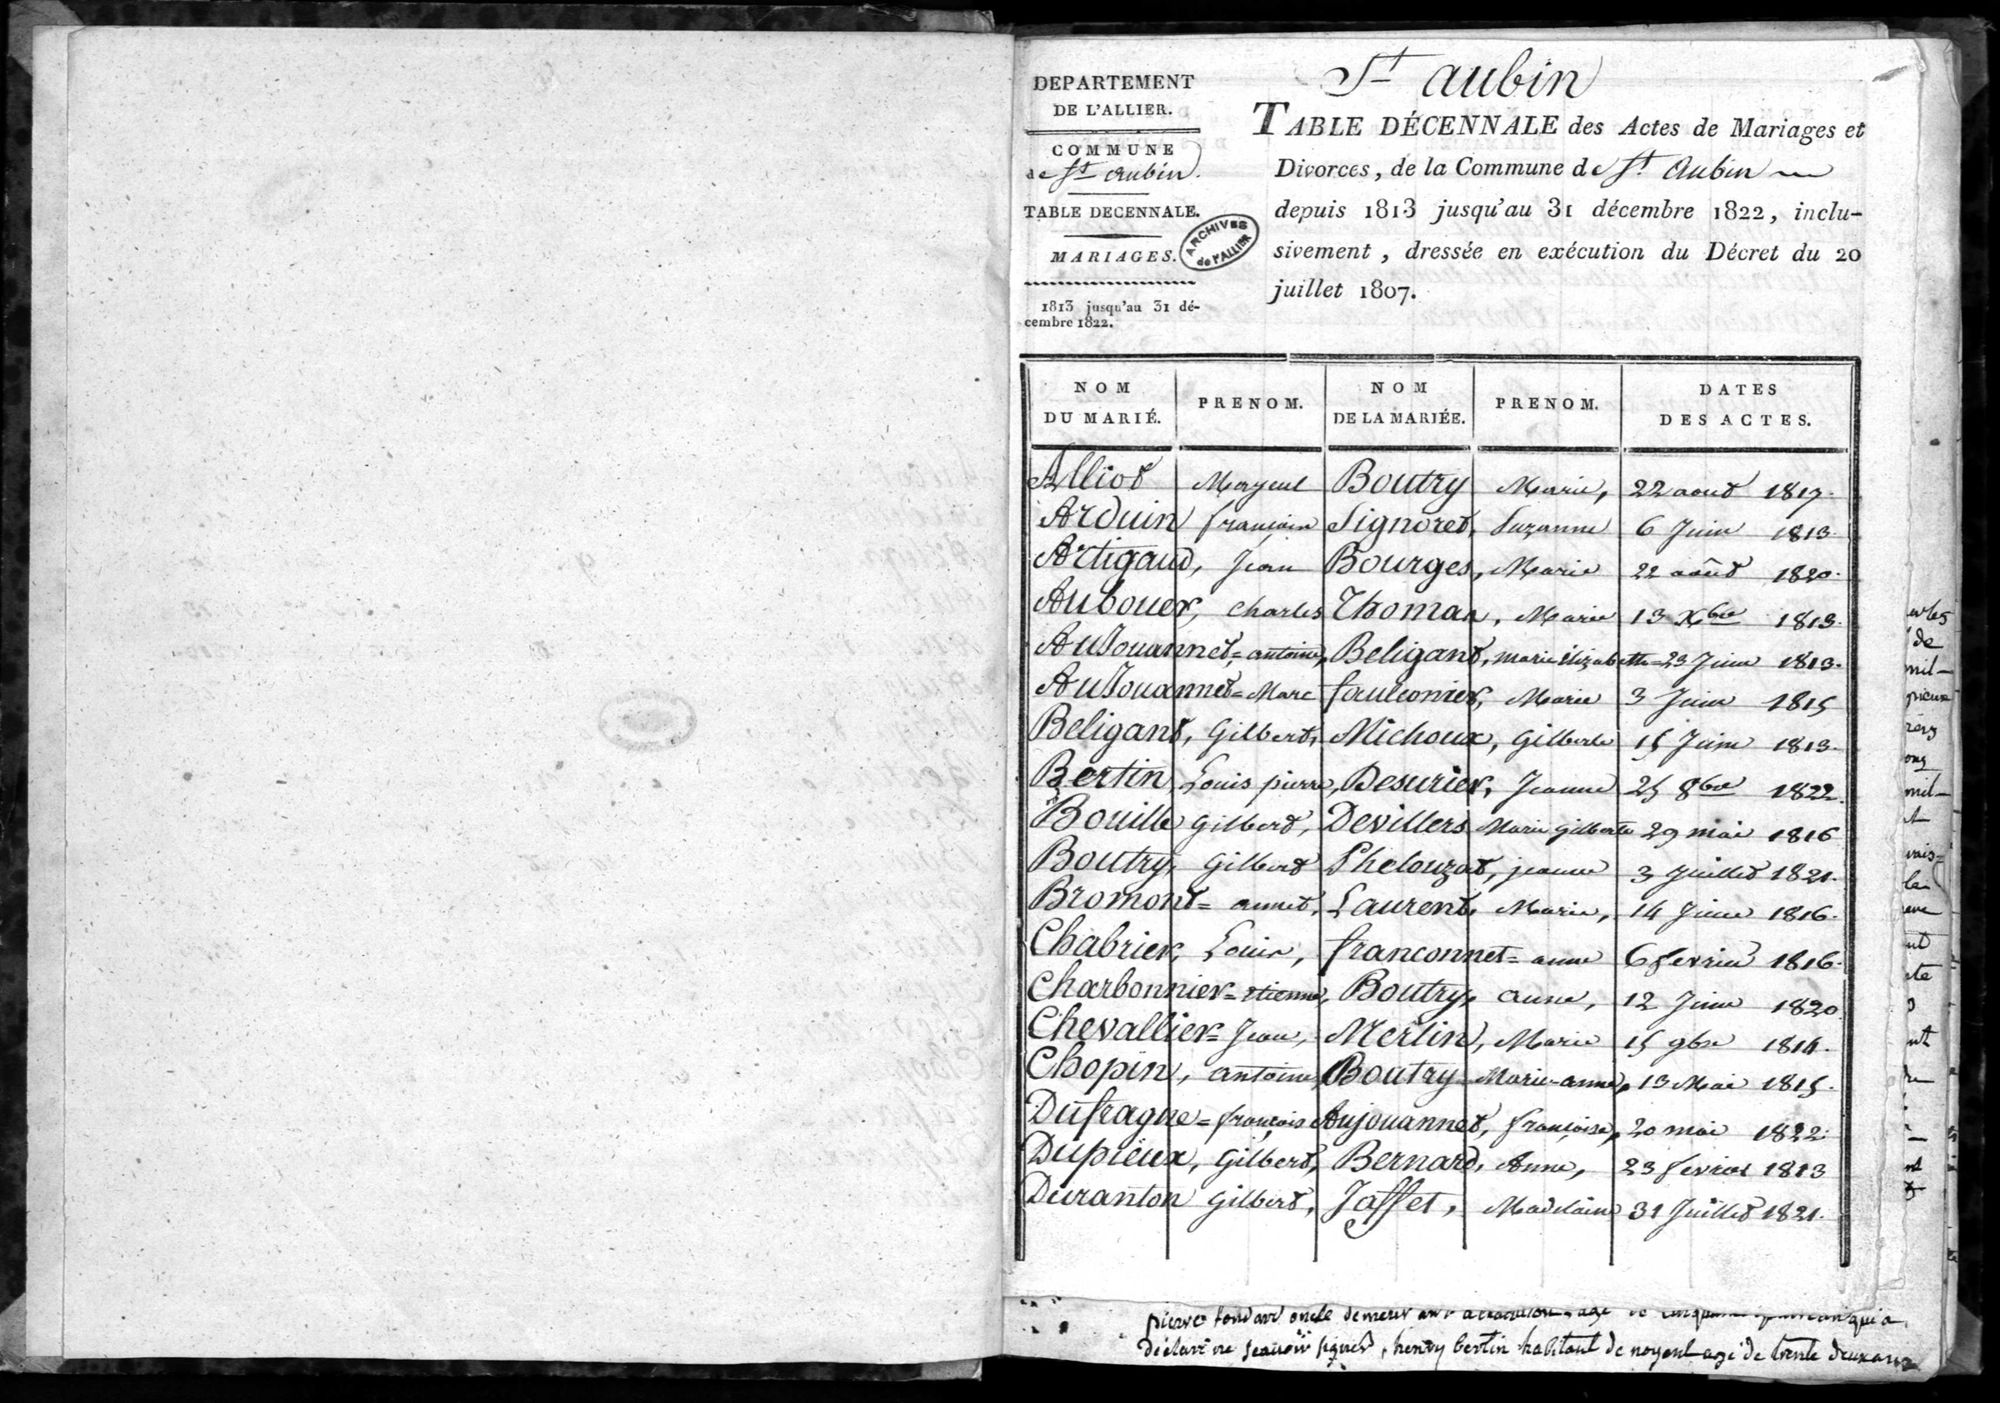 St aubin
DEPARTEMENT
DE L'ALLIER.
COMMUNE
de St aubin.
TABLE DECENNALE.
MARIAGES.
1813 jusqu'au 31 dé-
cembre 1822.
ARCHIVES
de l'ALLIER
TABLE DÉCENNALE des Actes de Mariages et
Divorces, de la Commune de St. Aubin
depuis 1813 jusqu'au 31 décembre 1822, inclu-
sivement, dressée en exécution du Décret du 20
juillet 1807.
NOM DU MARIÉ. PRENOM. NOM DE LA MARIÉE. PRENOM. DATES DES ACTES.
Alliot Mayeul Boutry Marie, 22 aout 1817.
Arduin françois Signoret, Suzanne 6 Juin 1813.
Artigaud, Jean Bourges, Marie 22 août 1820.
Aubouer, Charles Thomas, Marie 13 Xbre 1813.
AuJouannet = antoine, Beligant, marie Elizabette = 23 Juin 1813.
AuJouannet = Marc fauconier, Marie 3 Juin 1815
Beligant, Gilbert, Michoux, Gilberte 15 Juin 1813.
Bertin Louis pierre, Desurier, Jeanne 25 8bre 1822.
Bouille Gilbert, Devillers Marie gilberte 29 mai 1816
Boutry, Gilbert Phelouzat, jeanne 3 Juillet 1821.
Bromont = annet, Laurent, Marie, 14 Juin 1816.
Chabrier, Louis, franconnet = anne 6 fevrier 1816.
Charbonnier = etienne, Boutry, anne, 12 Juin 1820.
Chevallier = Jean, Merlin, Marie 15 9bre 1814.
Chopin, antoine, Boutry Marie-anne, 13 Mai 1815.
Dufragne = françois Aujouannet, françoise, 20 mai 1822.
Dupieux, Gilbert, Bernard, Anne, 23 fevrier 1813
Duranton Gilbert, Jaffet, Madelaine 31 Juillet 1821.
pierre oncle qui a
déclaré ne scavoir signer, henry bertin habitant de noyant agé de trente deux ans